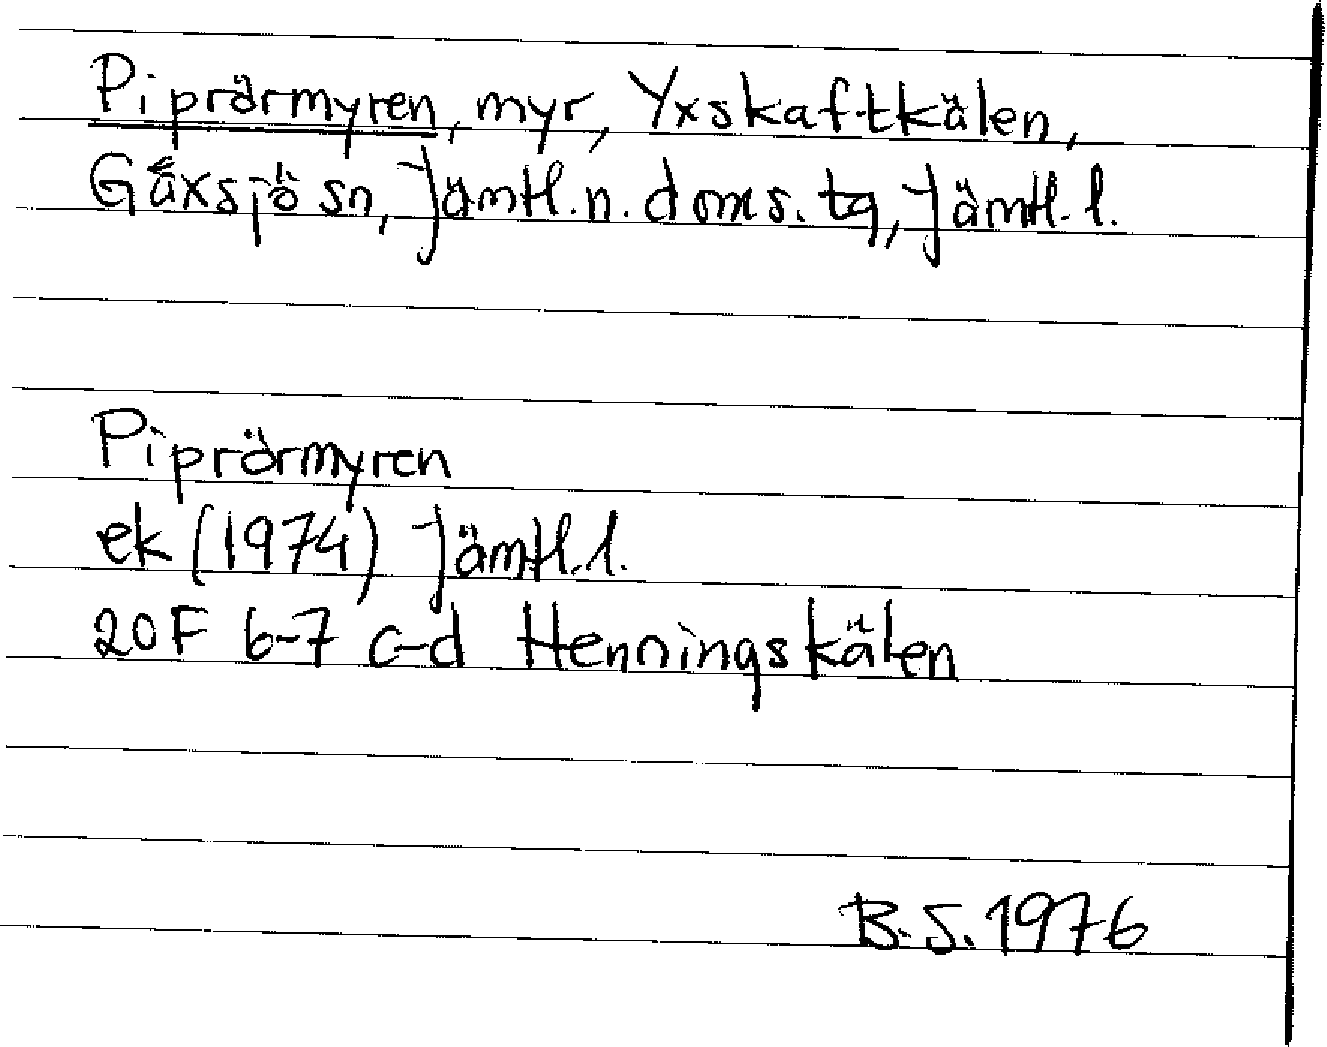 Piprörmyren, myr, Yxskaftkälen,
Gåxsjö sn, Jämtl. n. doms. tg, Jämtl. l.
Piprörmyren
ek (1974) Jämtl. l.
20F 6-7 c-d Henningskälen
B.S. 1976